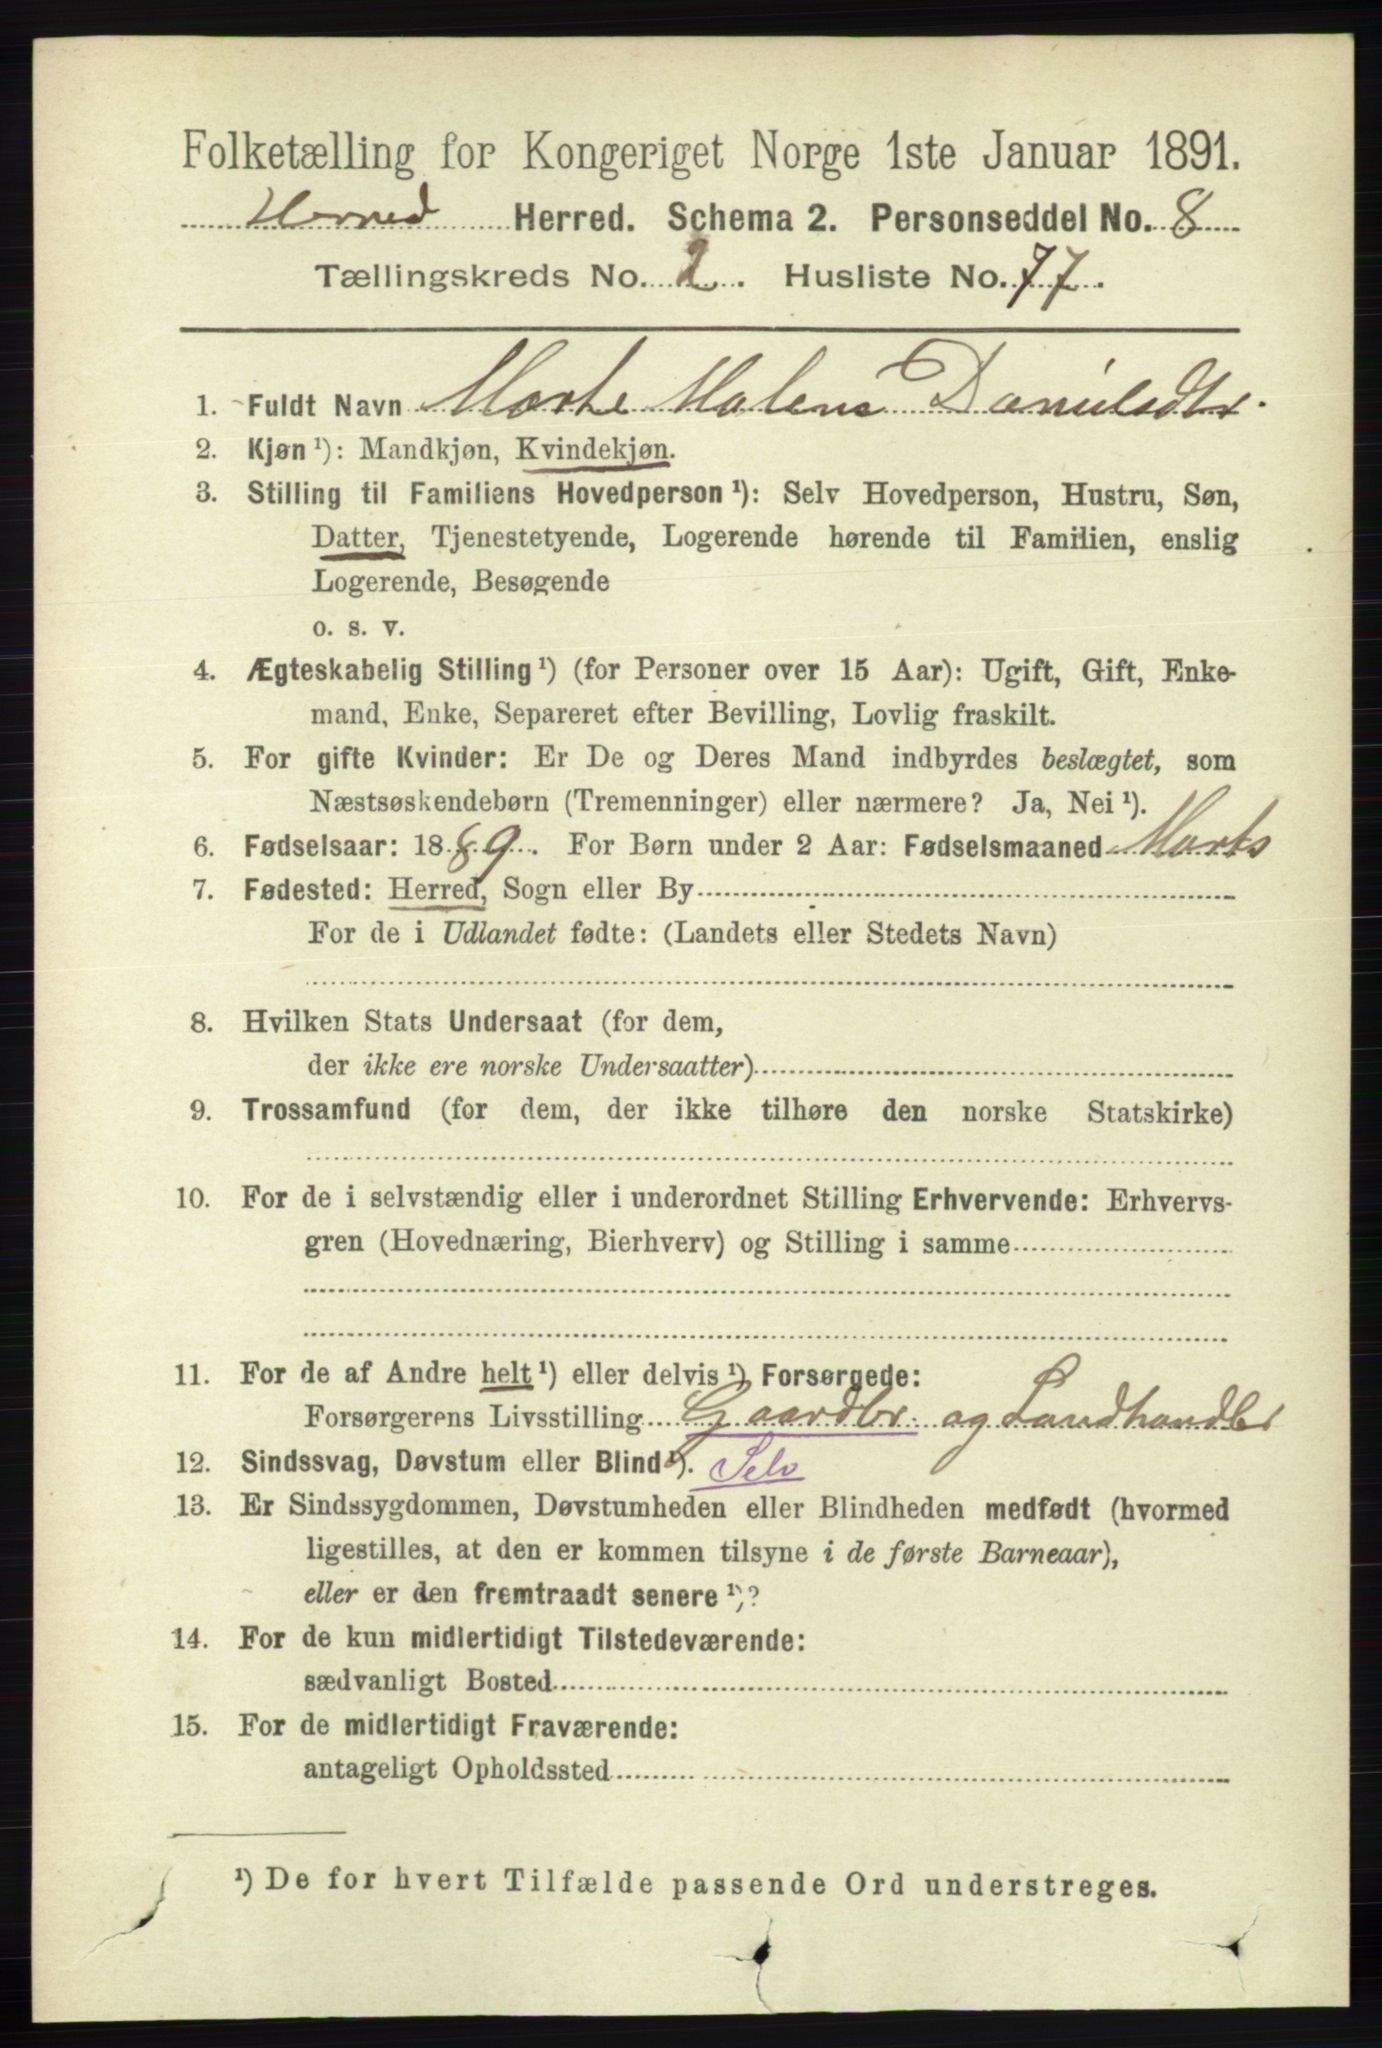 Folketælling for Kongeriget Norge 1ste Januar 1891.
Herred Herred. Schema 2. Personseddel No. 8
Tællingskreds No. 2. Husliste No. 77.
1. Fuldt Navn Marte Malene Danielsdtr.
2. Kjøn ¹): Mandkjøn, Kvindekjøn.
3. Stilling til Familiens Hovedperson ¹): Selv Hovedperson, Hustru, Søn,
Datter, Tjenestetyende, Logerende hørende til Familien, enslig
Logerende, Besøgende
o. s. v.
4. Ægteskabelig Stilling ¹) (for Personer over 15 Aar): Ugift, Gift, Enke-
mand, Enke, Separeret efter Bevilling, Lovlig fraskilt.
5. For gifte Kvinder: Er De og Deres Mand indbyrdes beslægtet, som
Næstsøskendebørn (Tremenninger) eller nærmere? Ja, Nei ¹).
6. Fødselsaar: 1889. For Børn under 2 Aar: Fødselsmaaned Marts
7. Fødested: Herred, Sogn eller By
For de i Udlandet fødte: (Landets eller Stedets Navn)
8. Hvilken Stats Undersaat (for dem,
der ikke ere norske Undersaatter)
9. Trossamfund (for dem, der ikke tilhøre den norske Statskirke)
10. For de i selvstændig eller i underordnet Stilling Erhvervende: Erhvervs-
gren (Hovednæring, Bierhverv) og Stilling i samme
11. For de af Andre helt ¹) eller delvis ¹) Forsørgede:
Forsørgerens Livsstilling Gaardbr. og Landhandler
12. Sindssvag, Døvstum eller Blind ¹). Selv
13. Er Sindssygdommen, Døvstumheden eller Blindheden medfødt (hvormed
ligestilles, at den er kommen tilsyne i de første Barneaar),
eller er den fremtraadt senere ¹)?
14. For de kun midlertidigt Tilstedeværende:
sædvanligt Bosted
15. For de midlertidigt Fraværende:
antageligt Opholdssted
¹) De for hvert Tilfælde passende Ord understreges.